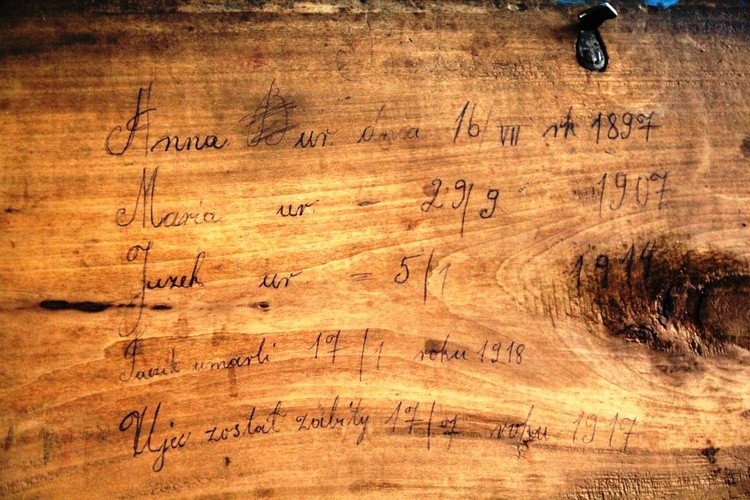 Anna ur. dnia 16/VII rk 1897
Maria ur. - 29/9 1907
Juzek ur = 5/1 1914
umarli 17/1 roku 1918
Ujec został zabity 17/7 roku 1917